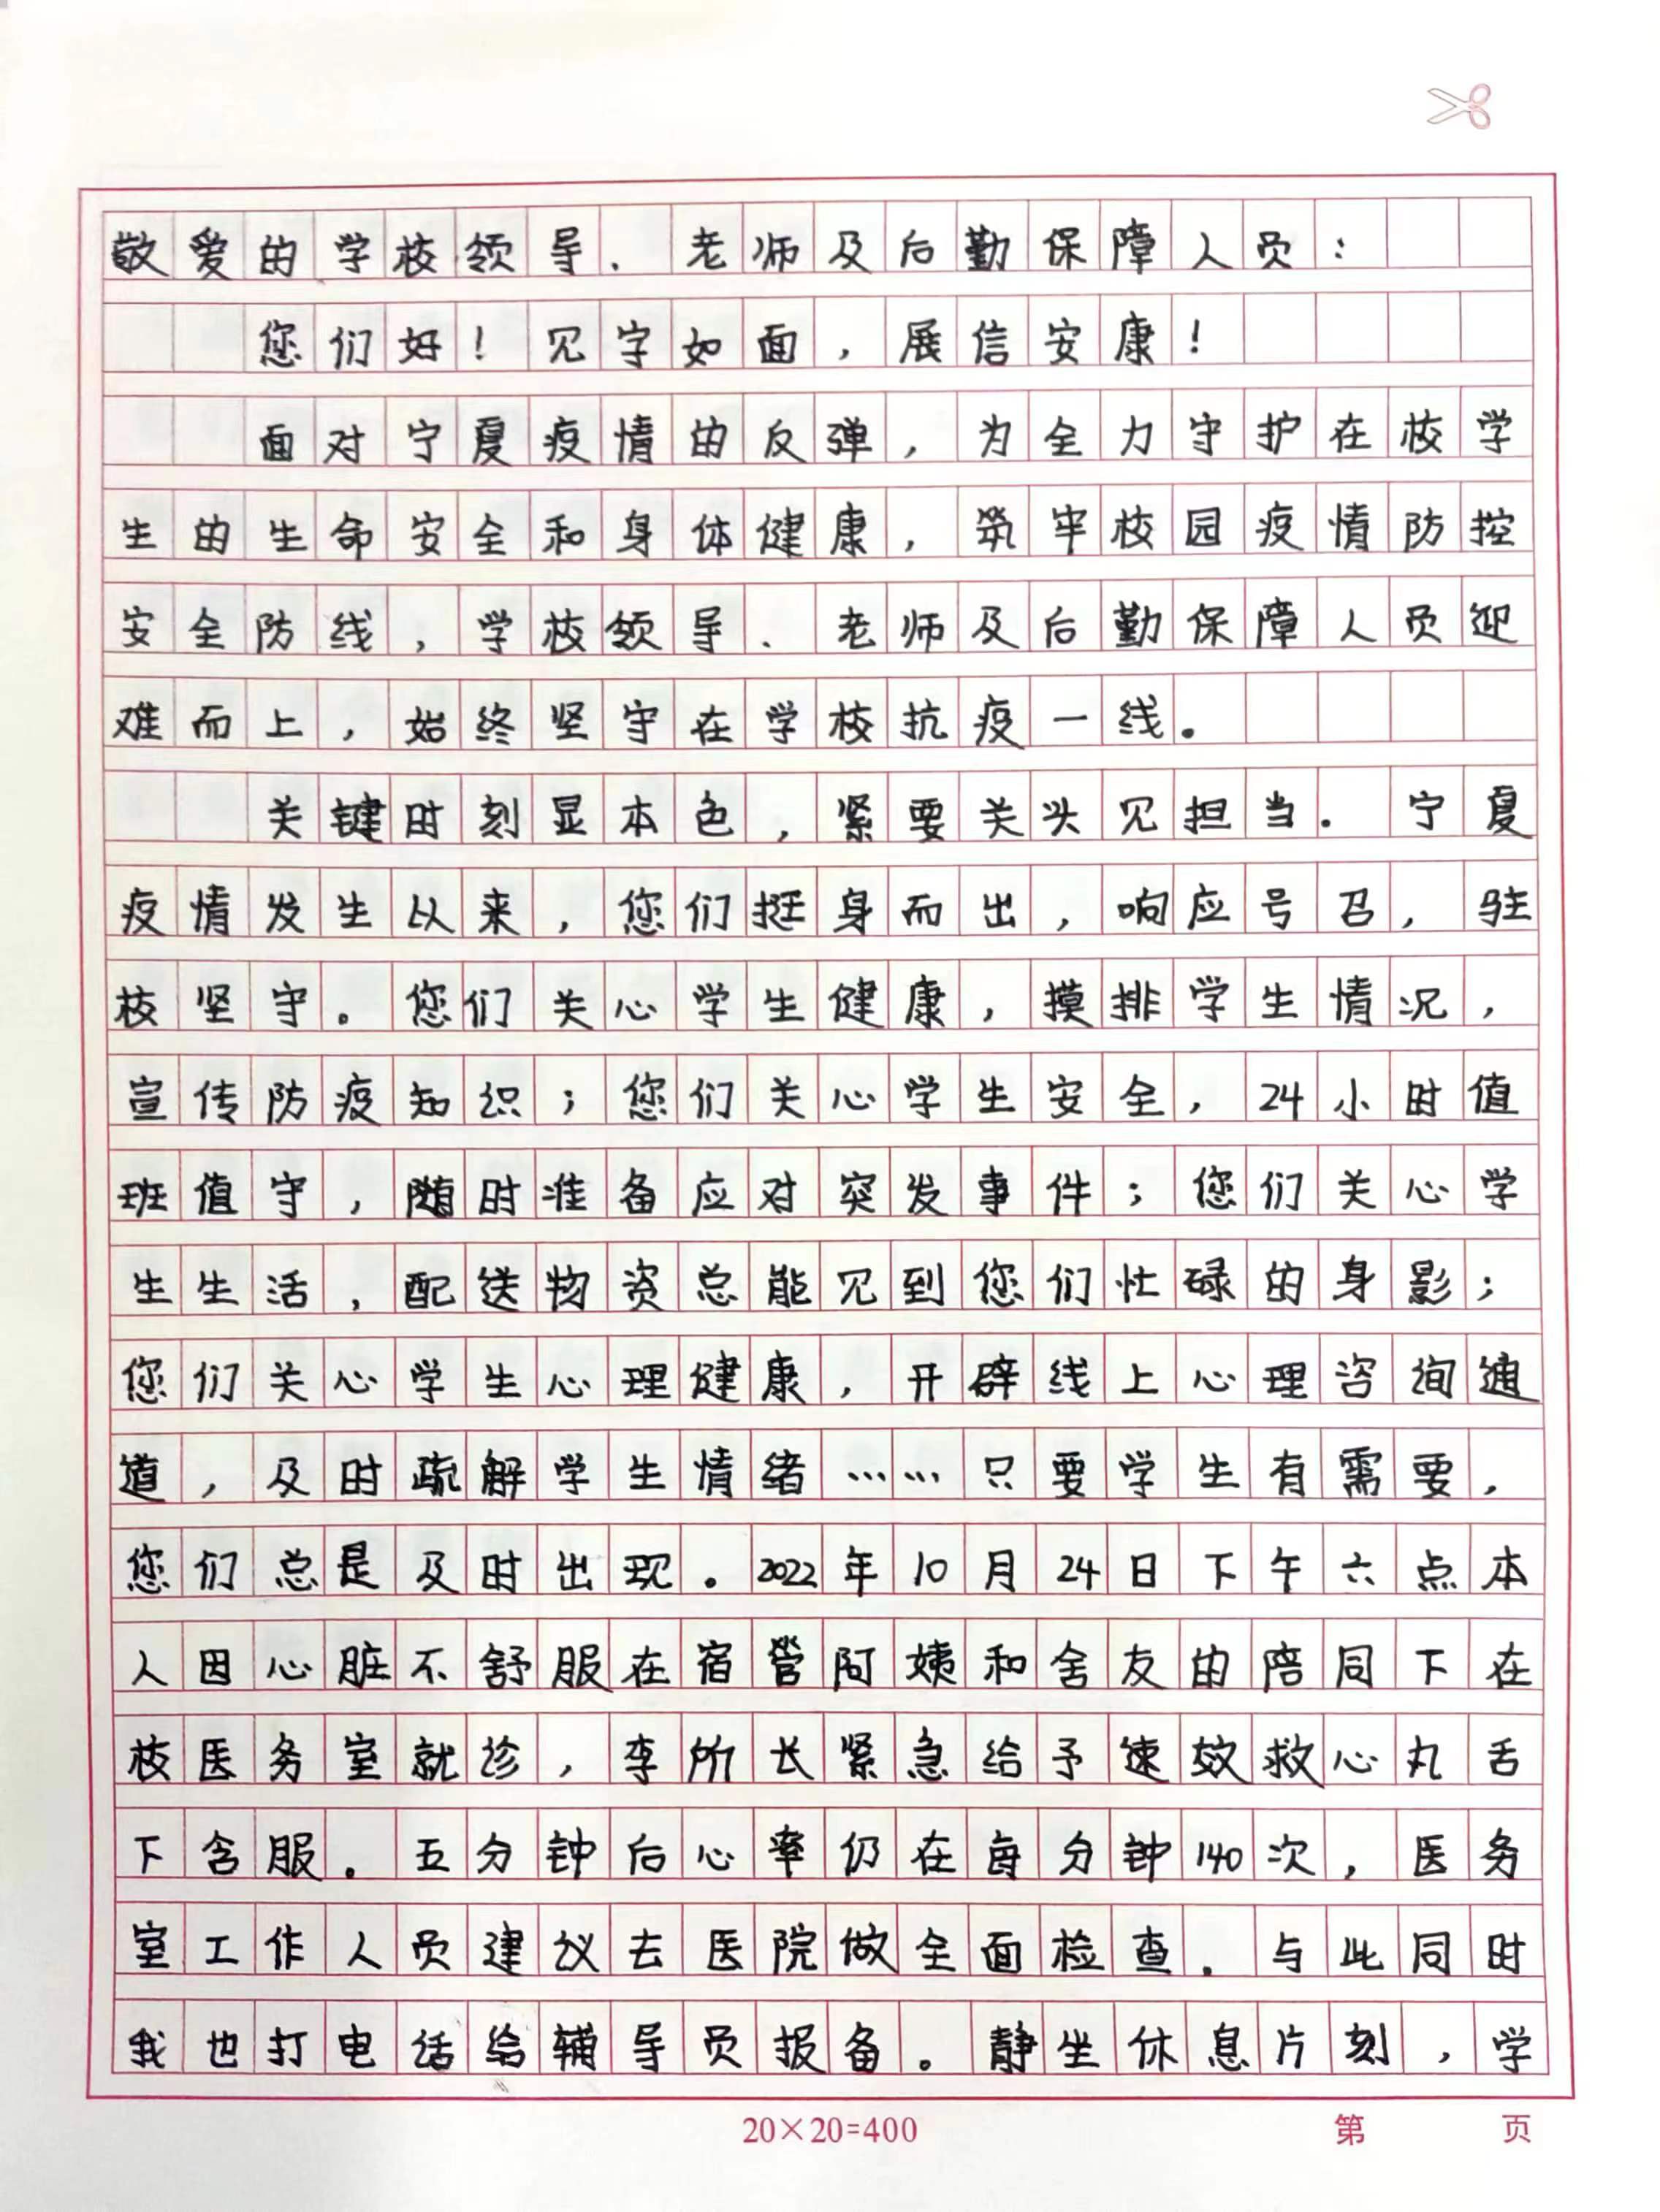 敬爱的学校领导、老师及后勤保障人员：
您们好！见字如面，展信安康！
面对宁夏疫情的反弹，为全力守护在校学
生的生命安全和身体健康，筑牢校园疫情防控
安全防线，学校领导、老师及后勤保障人员迎
难而上，始终坚守在学校抗疫一线。
关键时刻显本色，紧要关头见担当。宁夏
疫情发生以来，您们挺身而出，响应号召，驻
校坚守。您们关心学生健康，摸排学生情况，
宣传防疫知识；您们关心学生安全，24小时值
班值守，随时准备应对突发事件；您们关心学
生生活，配送物资总能见到您们忙碌的身影；
您们关心学生心理健康，开辟线上心理咨询通
道，及时疏解学生情绪……只要学生有需要，
您们总是及时出现。2022年10月24日下午六点本
人因心脏不舒服在宿管阿姨和舍友的陪同下在
校医务室就诊，李所长紧急给予速效救心丸舌
下含服。五分钟后心率仍在每分钟140次，医务
室工作人员建议去医院做全面检查。与此同时
我也打电话给辅导员报备。静坐休息片刻，学
20×20=400
第 页